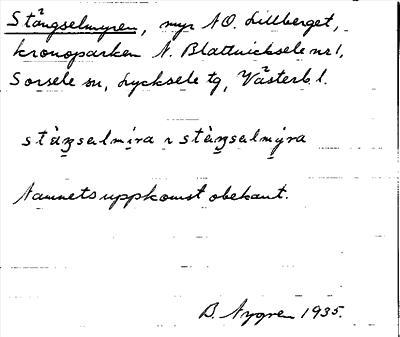 Stängselmyren, myr NO. Lillberget,
kronoparken N. Blattnicksele nr 1,
Sorsele sn, Lycksele tg, Västerb. l.
stäŋsəlmira ~ stäŋsəlmyra
Namnets uppkomst obekant.
B. Nygren 1935.